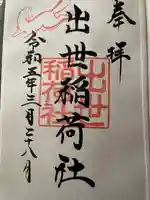 奉拝
出世稲荷社
出世稲荷社
令和五年三月二十八日